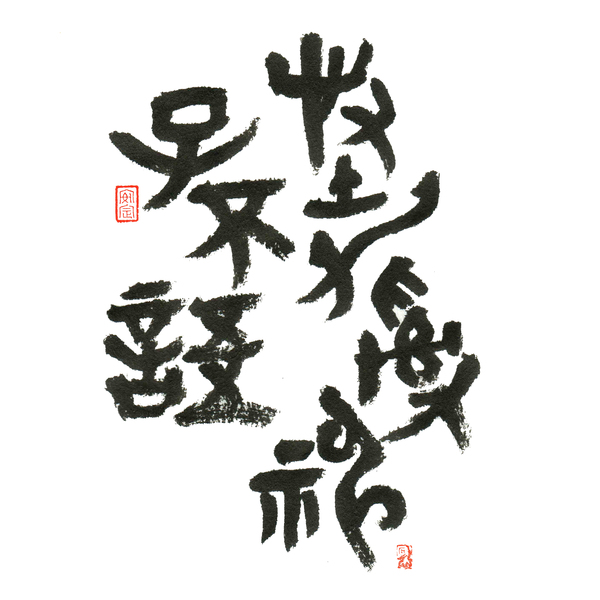 子不語
怪力亂神